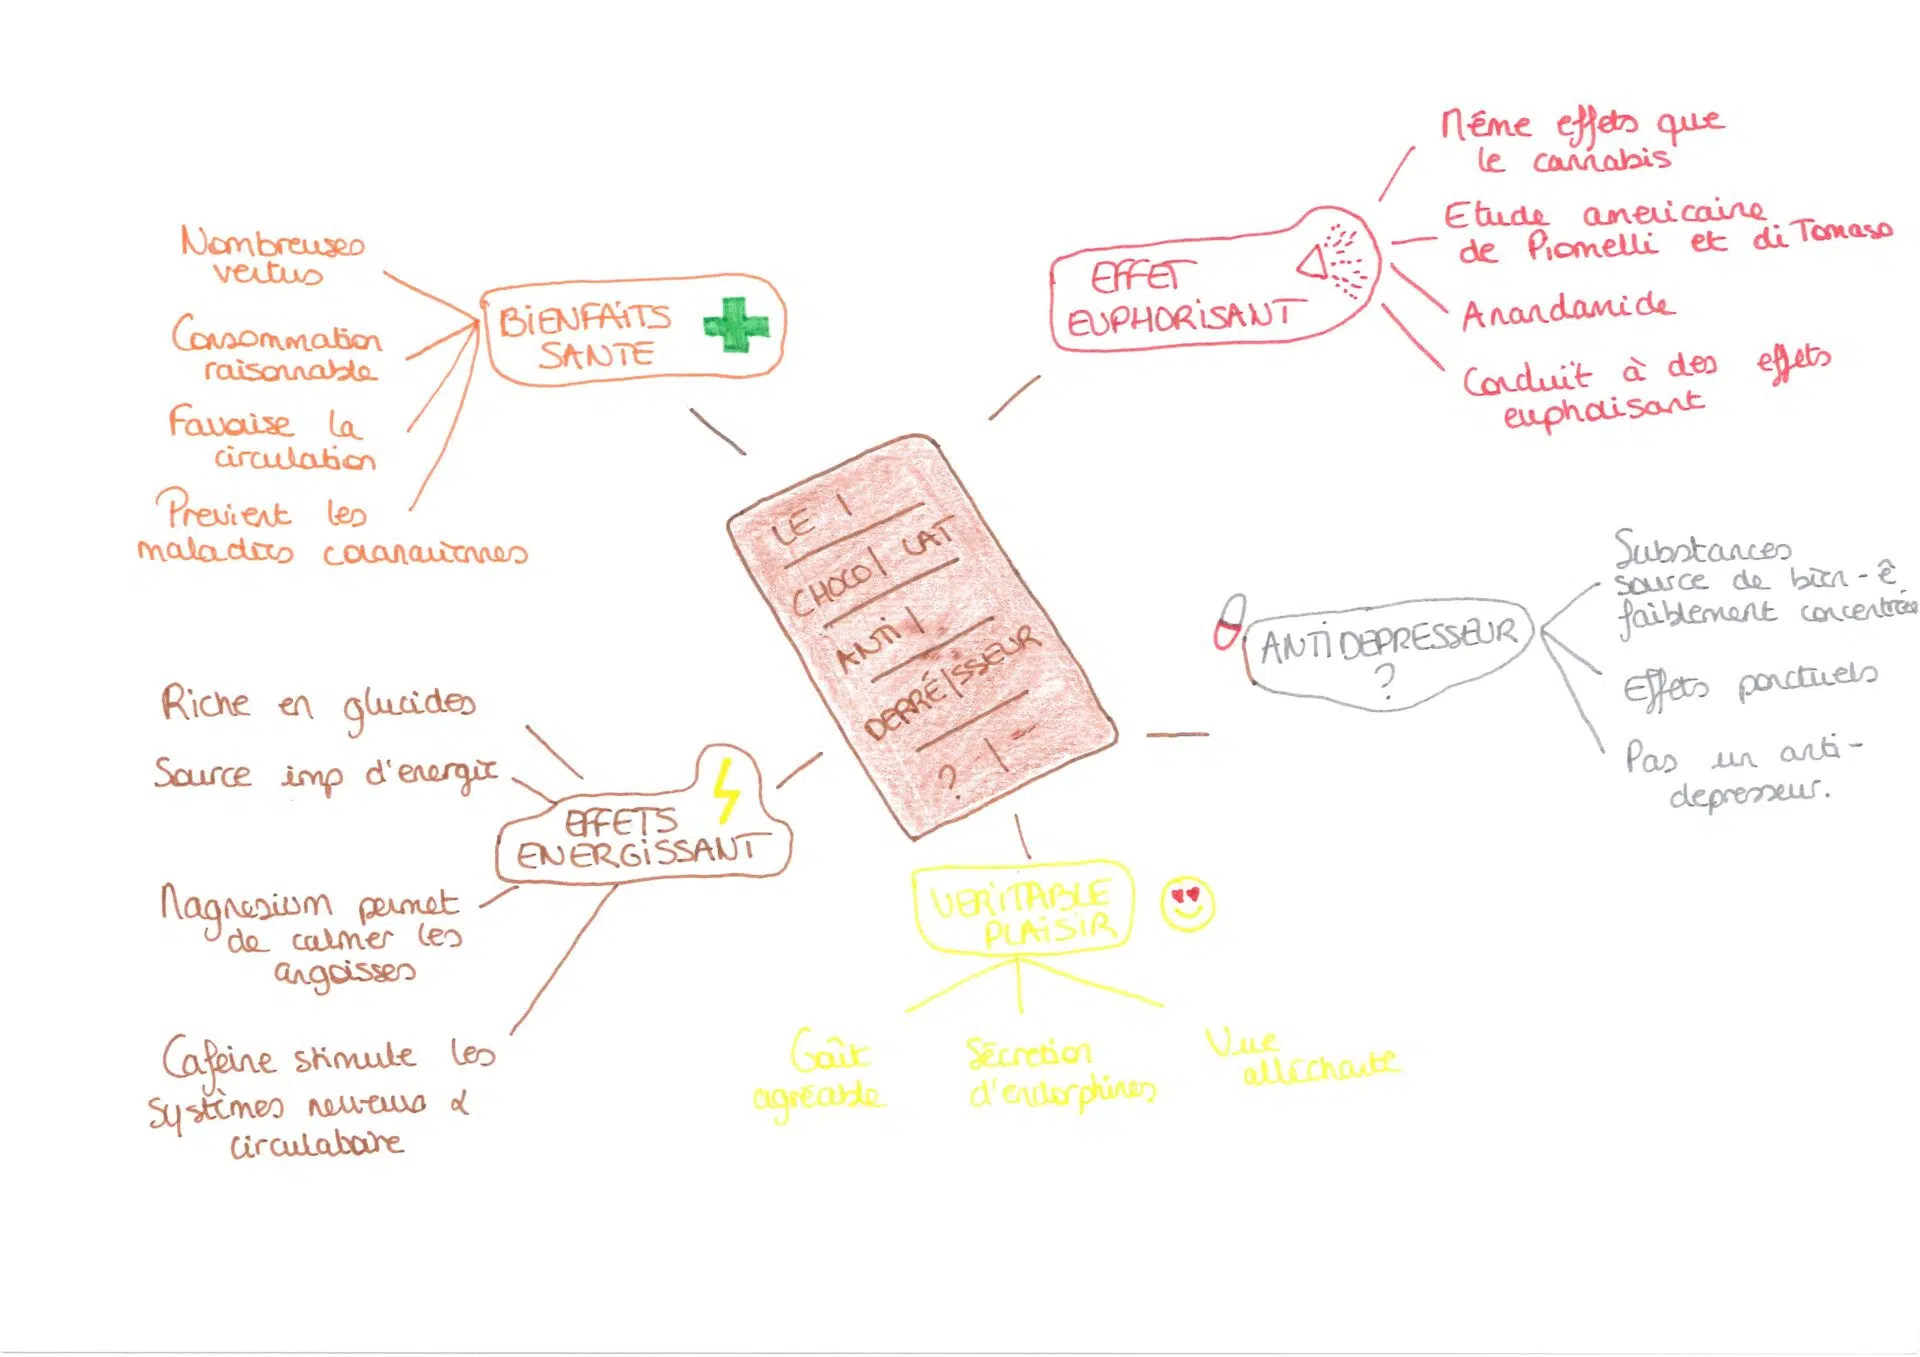 Nombreuses
vertus
Consommation
raisonnable
Favorise la
circulation
Previent les
maladies coronariennes
BIENFAITS
SANTE
EFFET
EUPHORISANT
Même effets que
le cannabis
Etude americaine
de Piomelli et di Tomaso
Anandamide
Conduit à des effets
euphorisant
LE
CHOCO LAT
ANTI
DEPRÉ SSEUR
?
ANTIDEPRESSEUR
?
Substances
source de bien-ê
faiblement concentrées
Effets ponctuels
Pas un anti-
depresseur.
Riche en glucides
Source imp d'energie
EFFETS
ENERGISSANT
Magnesium permet
de calmer les
angoisses
Cafeine stimule les
systèmes nerveux &
circulatoire
VERITABLE
PLAISIR
Goût
agréable
Sécretion
d'endorphines
Vue
alléchante